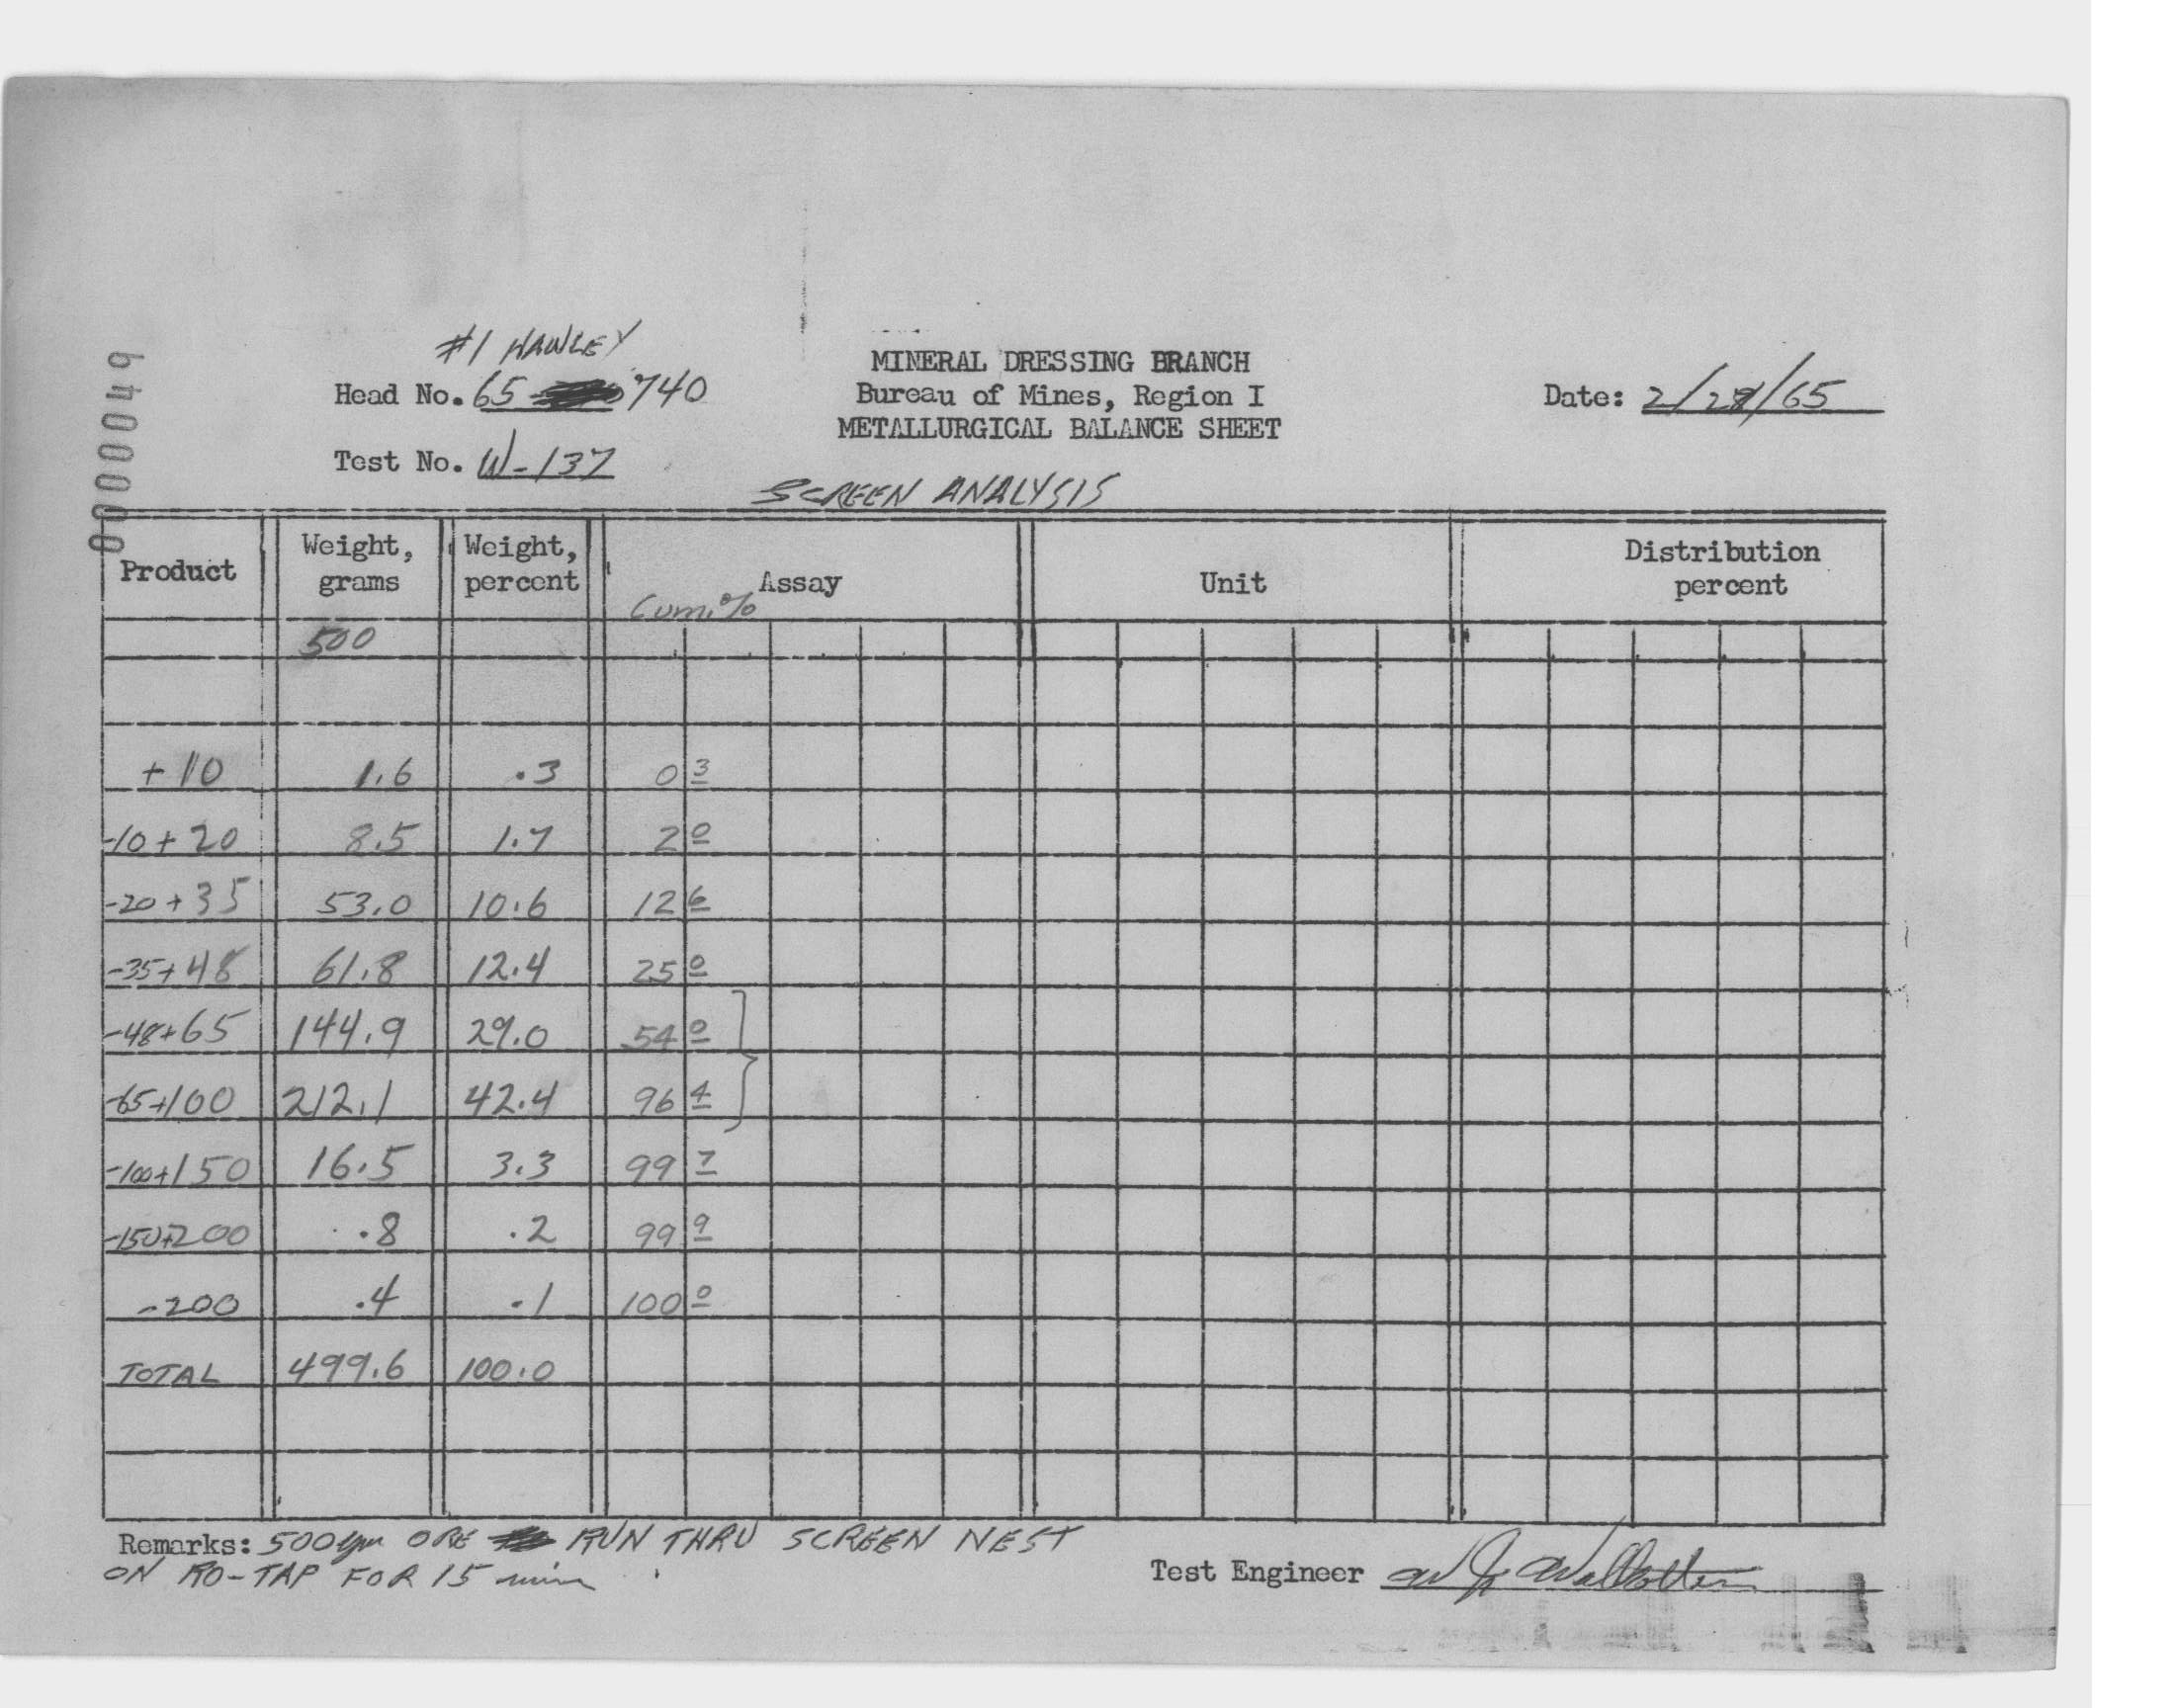 #1 HAWLEY
Head No. 65 740
Test No. W-137
MINERAL DRESSING BRANCH
Bureau of Mines, Region I
METALLURGICAL BALANCE SHEET
Date: 2/28/65
SCREEN ANALYSIS
6400000
Product Weight, grams Weight, percent Assay Unit Distribution percent
Cum.%
500
+10 1.6 .3 0 3
-10+20 8.5 1.7 2 0
-20+35 53.0 10.6 12 6
-35+48 61.8 12.4 25 0
-48+65 144.9 29.0 54 0
-65+100 212.1 42.4 96 4
-100+150 16.5 3.3 99 7
-150+200 .8 .2 99 9
-200 .4 .1 100 0
TOTAL 499.6 100.0
Remarks: 500gm ORE RUN THRU SCREEN NEST
ON RO-TAP FOR 15 min
Test Engineer